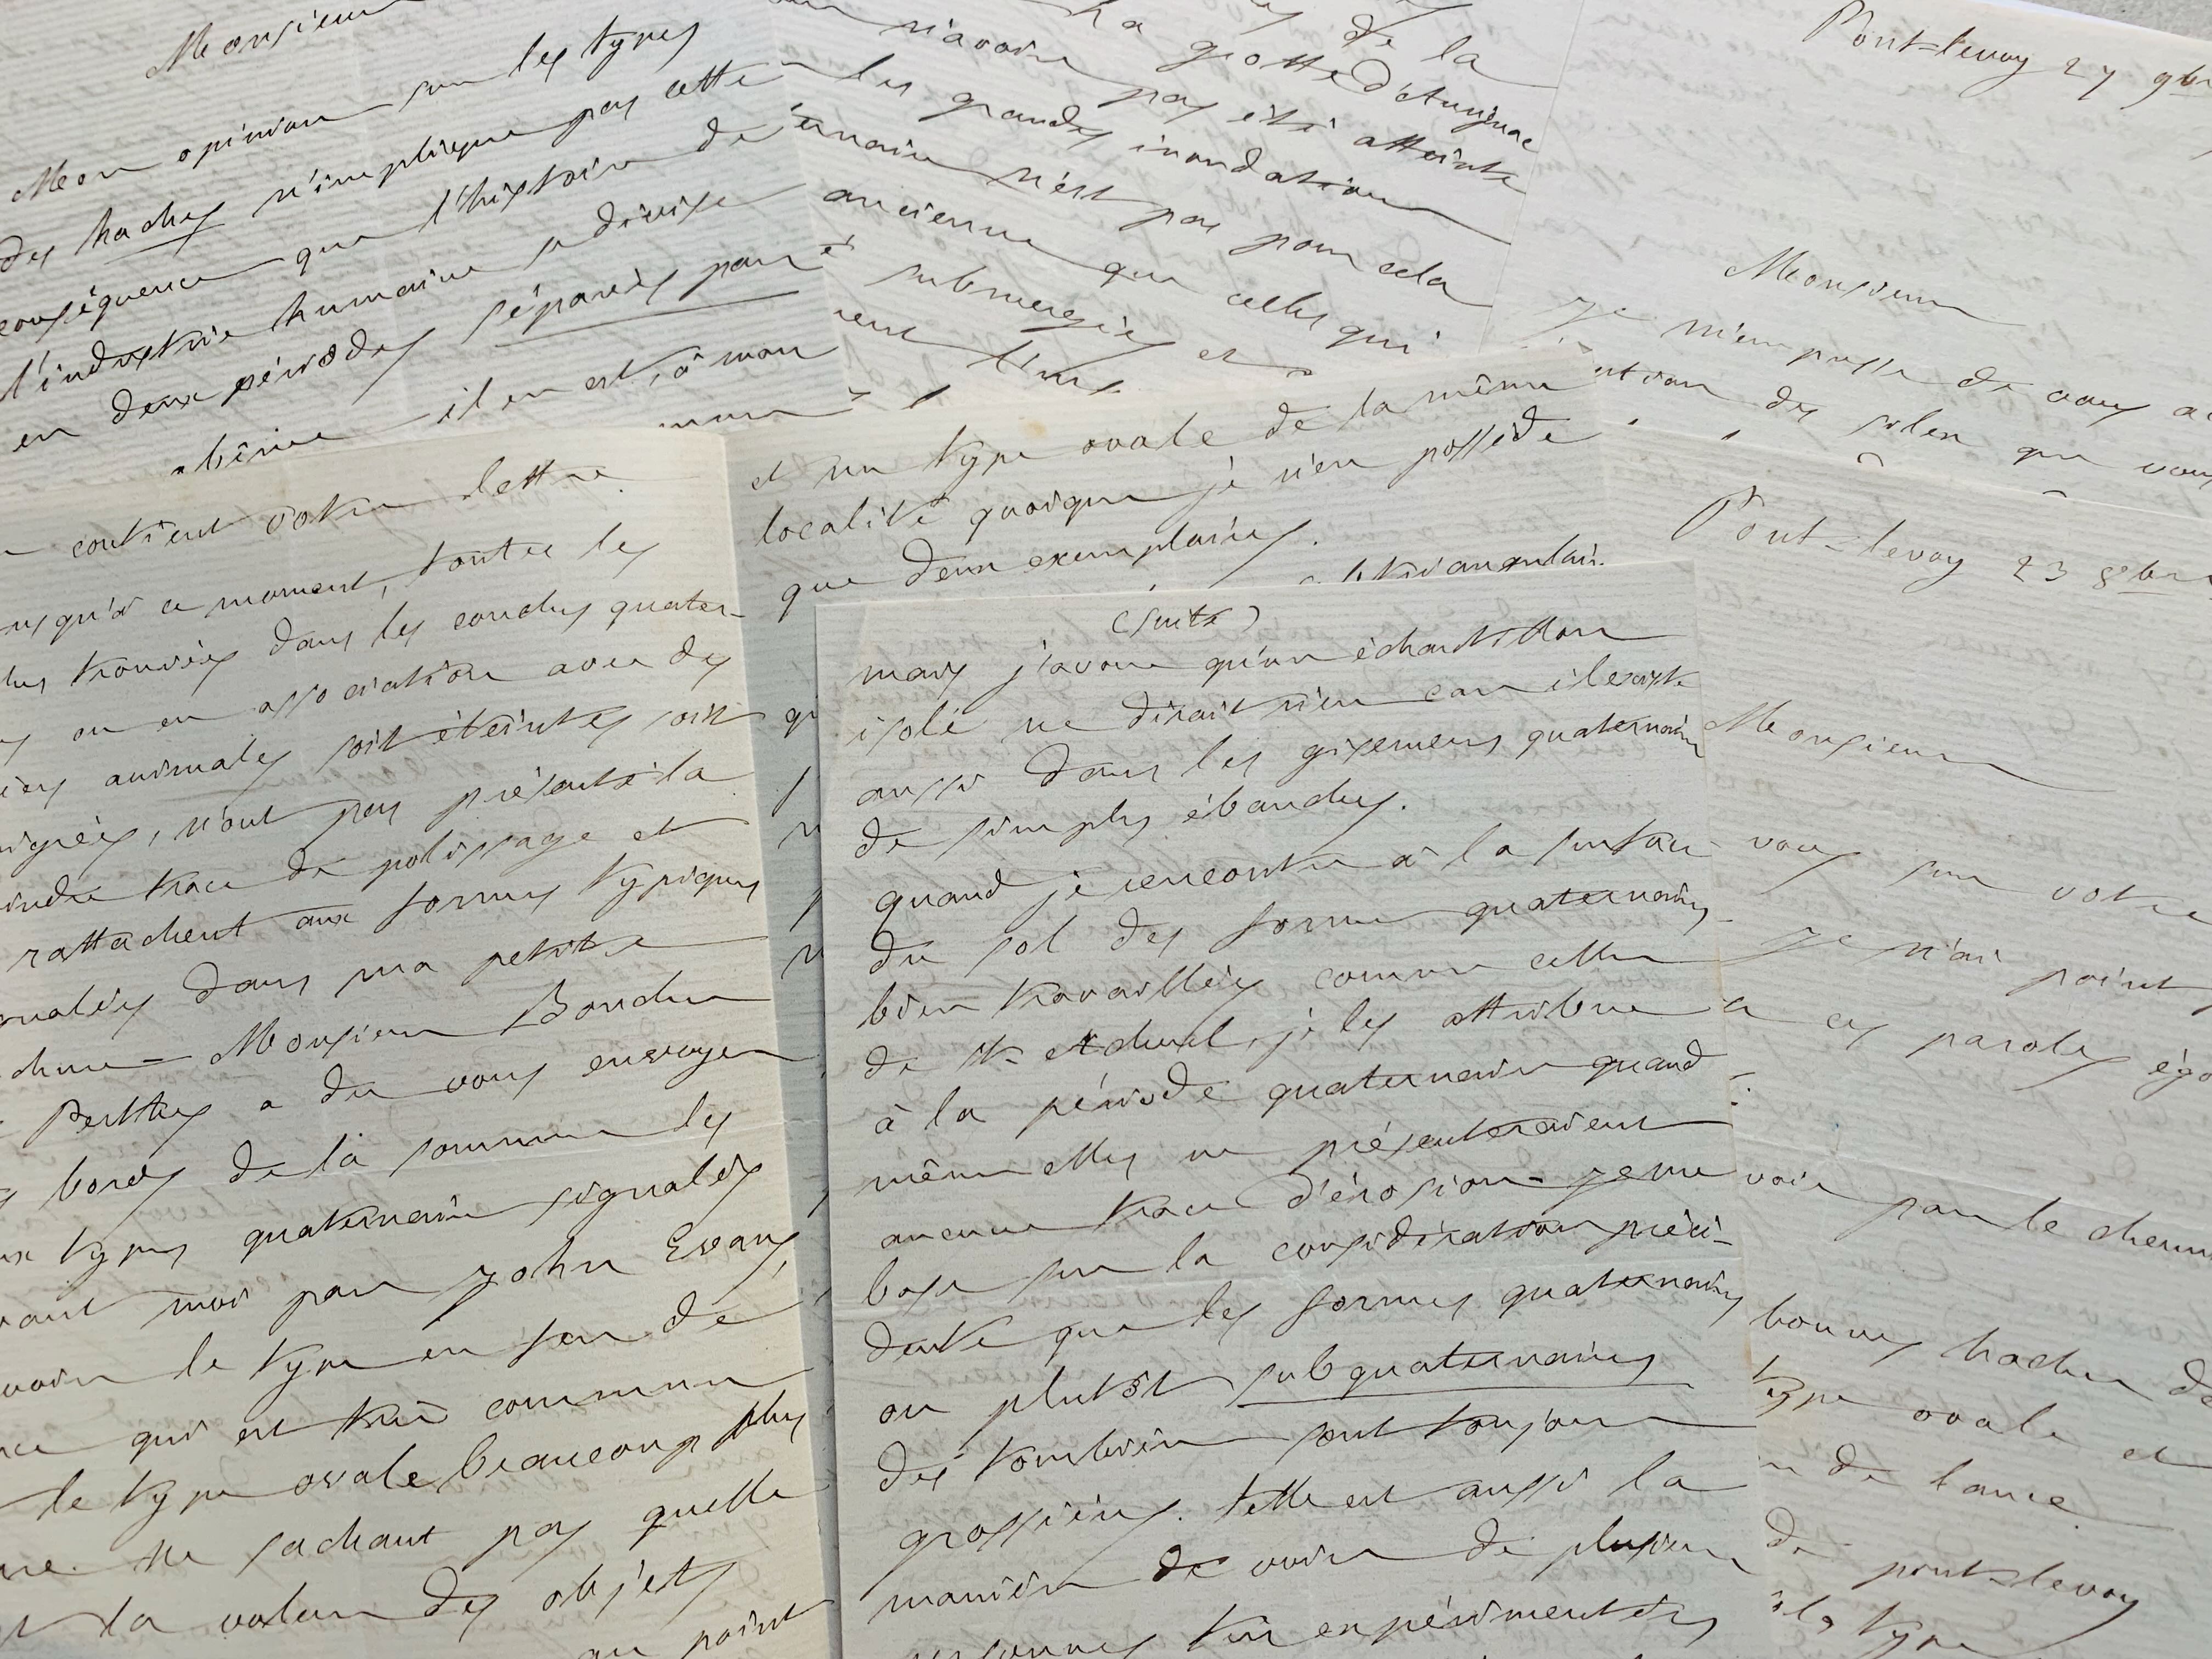 Monsieur
Mon opinion sur les types
des haches n'implique pas cette
conséquence que l'histoire de
l'industrie humaine se divise
en deux périodes séparées par
il en est, à mon
de la
la grotte d'Aurignac
n'avoir pas été atteinte
les grandes inondations
n'est pas pour cela
ancienne que celles qui
submergées et
Pontlevoy 27 9br
Monsieur
Je m'empresse de vous
des silex que vous
et un type ovale de la même
localité quoique je n'en possède
que deux exemplaires.
triangulair
Pont-levoy 23 8bre
Monsieur
vous sur votre
Je n'ai point
ces paroles
voie par le chemin
bonnes haches de
type ovale et
de lance
de pont-levoy
type
contient votre lettre
jusqu'à ce moment, toutes les
trouvées dans les couches quater-
ou en association avec des
animales soit éteintes soit
émigrées, n'ont pas présenté la
moindre trace de polissage et
rattachent aux formes typiques
signalées dans ma petite
Monsieur Boucher
Perthes a du vous envoyer
bords de la somme les
types quaternaire signalés
avant moi par John Evans,
savoir le type en fer de
lance qui est très commun
le type ovale beaucoup plus
ne sachant pas quelle
la valeur des objets
au point
(suite)
mais j'avoue qu'un échantillon
isolé ne dirait rien car il existe
aussi dans les gisemens quaternaires
de simples ébauches.
quand je rencontre à la surface
du sol des forme quaternaires
bien travaillées comme celles
de St Acheul, je les attribue
à la période quaternaire quand
même elles ne présenteraient
aucune trace d'érosion - je me
base sur la considération précé-
dente que les formes quaternaires
ou plutôt subquaternaires
des tombières sont toujours
grossières. telle est aussi la
manière de voir de plusieurs
personnes très expérimentées